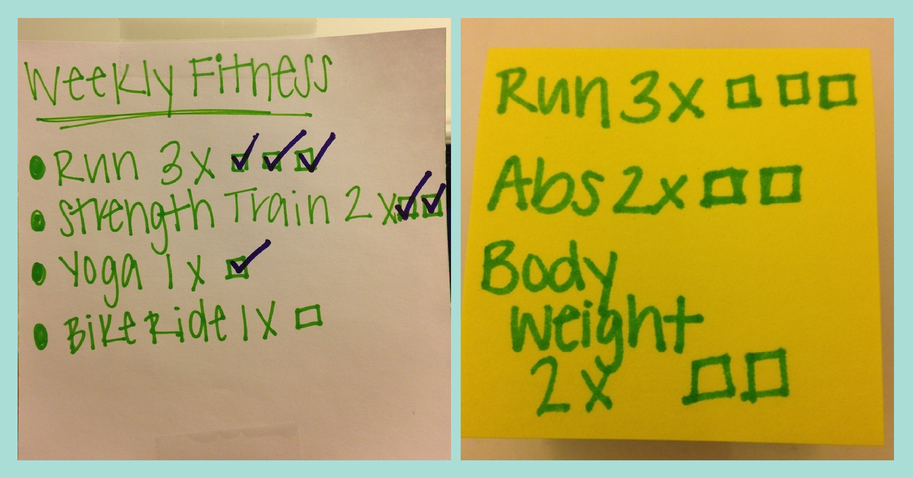 Weekly Fitness
• Run 3x ☑ ☑ ☑
• Strength Train 2x ☑ ☑
• Yoga 1x ☑
• Bike Ride 1x ☐
Run 3x ☐ ☐ ☐
Abs 2x ☐ ☐
Body
Weight
2x ☐ ☐